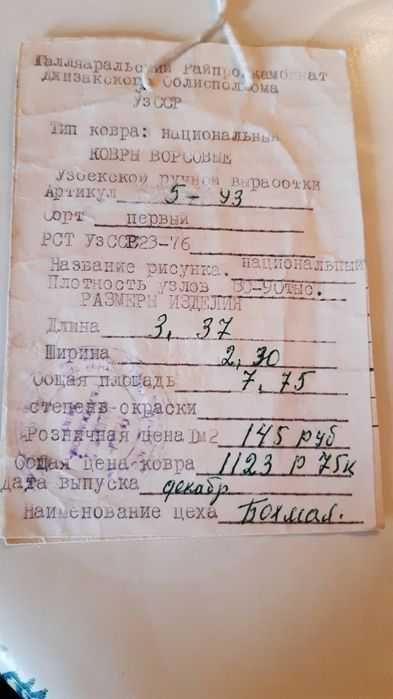 Галляаральский Райпромкамбинат
Джизакского Облисполкома
УзССР
Тип ковра: национальный
КОВРЫ ВОРСОВЫЕ
Узбекской ручной выработки
Артикул 5-43
Сорт первый
РСТ УзССР 23-76
Название рисунка. национальный
Плотность узлов 80-90тыс.
РАЗМЕРЫ ИЗДЕЛИЯ
Длина 3,37
Ширина 2,30
Общая площадь 7,75
степень окраски
Розничная цена 1м2 145 руб
Общая цена ковра 1123 р 75к
дата выпуска декабр
Наименование цеха Бохмал.